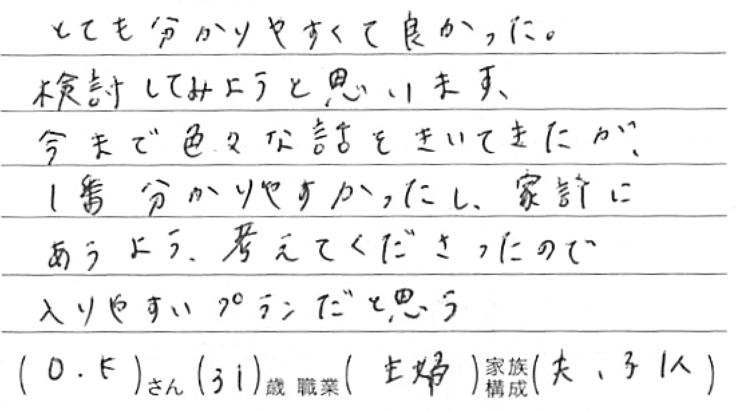 とても分かりやすくて良かった。
検討してみようと思います、
今まで色々な話をきいてきたが、
1番 分かりやすかったし、家計に
あうよう、考えてくださったので
入りやすいプランだと思う
(O.F)さん(31)歳 職業(主婦)家族構成(夫、子1人)